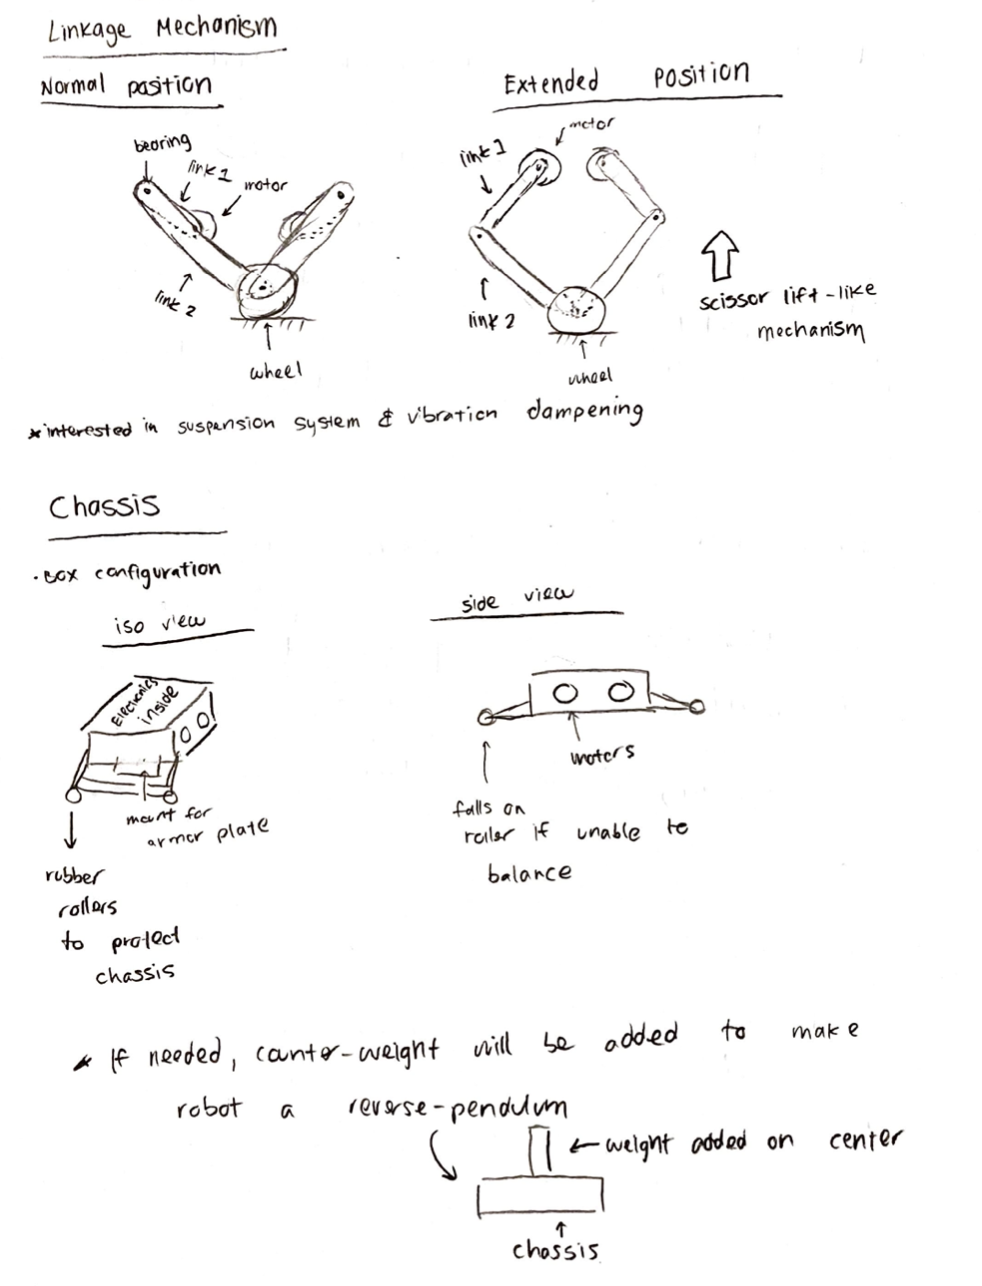 Linkage Mechanism
Normal position
Extended Position
bearing
link 1
motor
link 2
wheel
motor
link 1
link 2
wheel
scissor lift-like
mechanism
*interested in suspension system & vibration dampening
Chassis
• Box configuration
iso view
side view
Electronics
inside
mount for
armor plate
rubber
rollers
to protect
chassis
motors
falls on
roller if unable to
balance
* If needed, counter-weight will be added to make
robot a reverse-pendulum
weight added on center
chassis